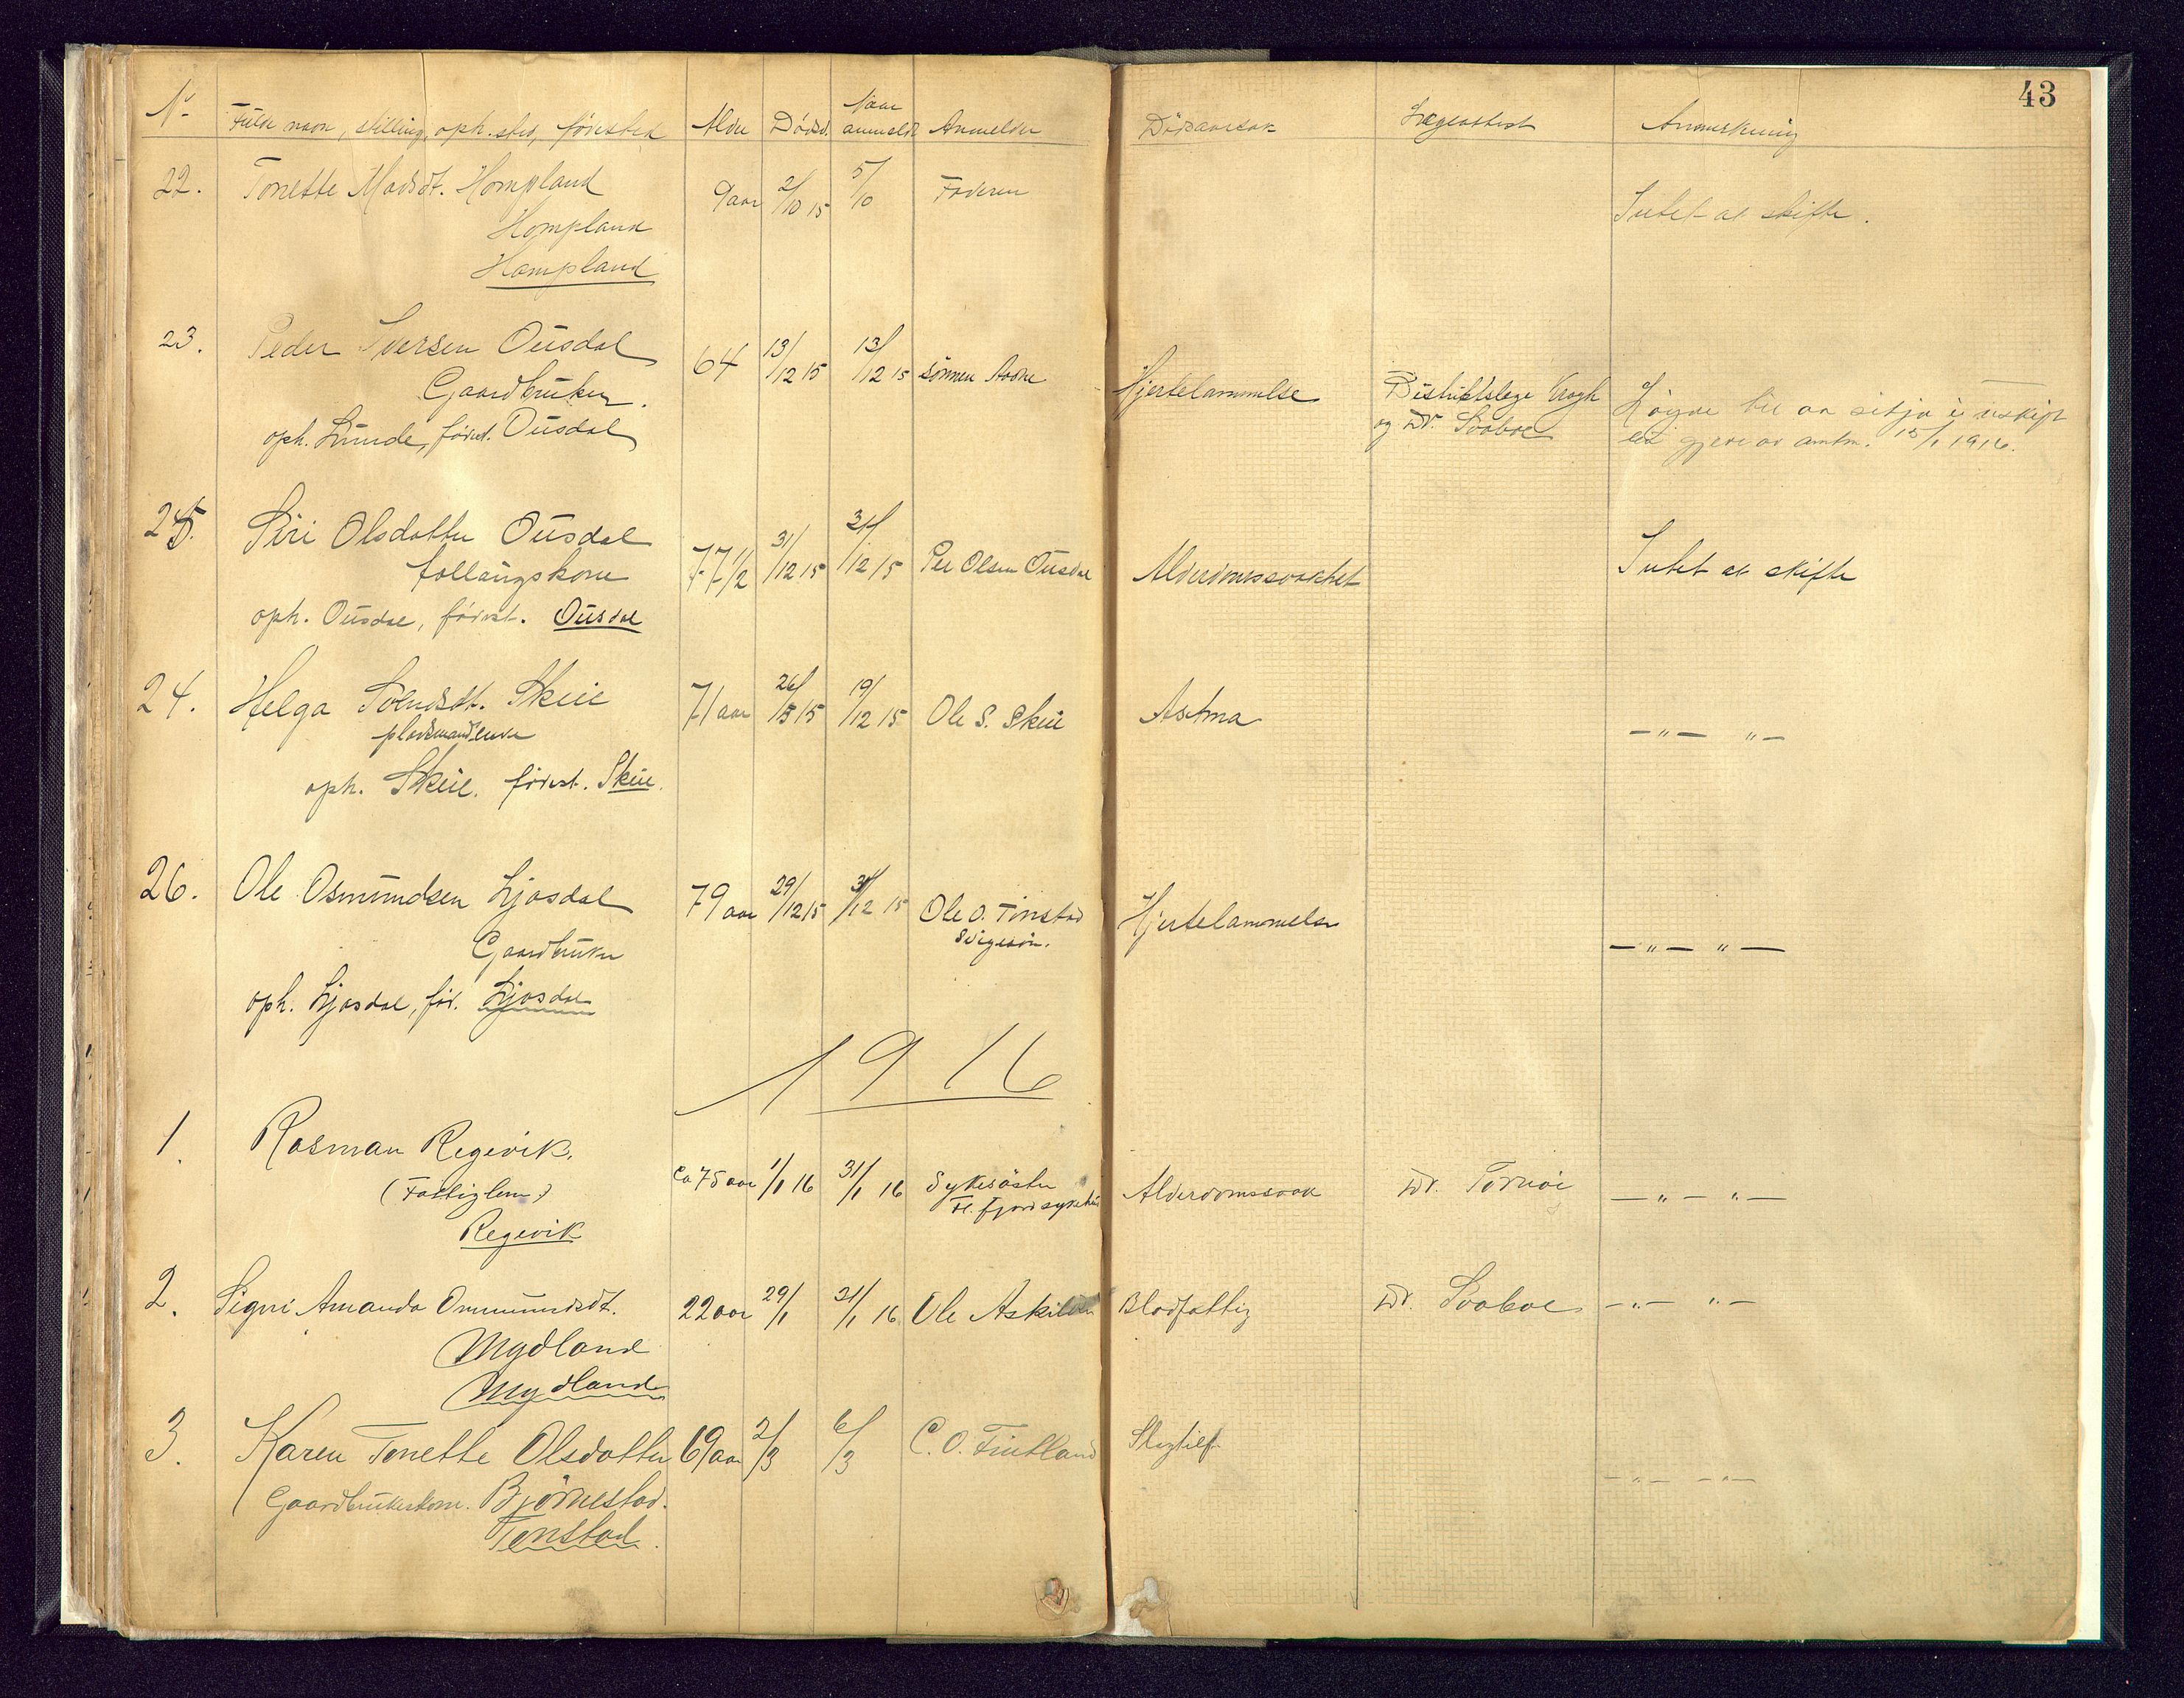 43
No. Fulde navn, stilling, oph.sted, fødested Alder Dødsd. Naar anmeldt Anmelder Dødsaarsak Lægeattest Anmerkning
22. Tonette Madsdt. Hompland 9 aar 2/10 15 5/10 Faderen Intet at skifte.
Hompland
Hompland
23. Peder Iversen Ousdal 64 13/12 15 13/12 15 sønnen Hjertelammelse Distriktslege Krogh
Gaardbruker. og Dr. Svaboe
oph. Lunde, fødest. Ousdal 15/1 1916.
25. Siri Olsdatter Ousdal 77 1/2 31/12 15 31/12 15 Per Olsen Ousdal Alderdomssvakhet Intet at skifte
follaugskone
oph. Ousdal, fødest. Ousdal
24. Helga Skeie 71 aar 26/ 15 19/12 15 Ole S. Skeie Astma —"— "—
pladsmandenke
oph. Skeie. fødest. Skeie.
26. Ole Osmundsen Ljosdal 79 aar 29/12 15 31/12 15 Ole O. Tonstad Hjertelammelse —"— "—
Gaardbruker Svigesøn.
oph. Ljosdal, fød. Ljosdal
1916
1. Rasman Regevik. ca 75 aar 1/1 16 31/1 16 Sykesøster Alderdomssvak Dr. —"— "—
(Fattiglem) Fl. fjord sykehus
Regevik
2. Signi Amanda Ommundsdt. 22 aar 29/1 31/1 16 Ole Askildsen Blodfattig Dr. Svaboe —"— "—
Mydland
Mydland
3. Karen Tonette Olsdatter 69 aar 2/3 6/3 C. O. Fintland Slagtilf. —"— —"—
Gaardbrukerkone. Bjørnestad.
Tonstad.